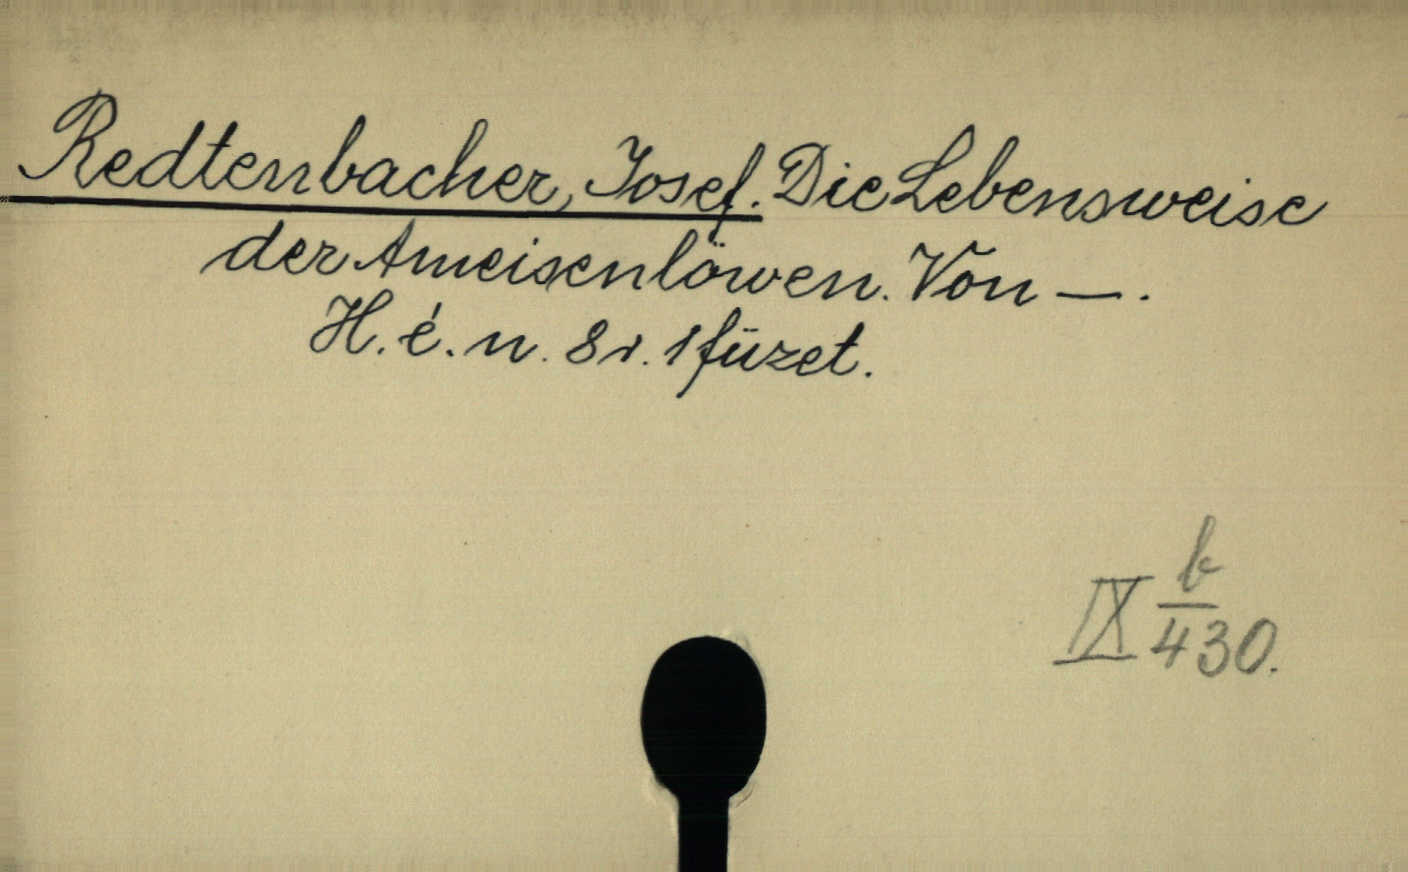 Redtenbacher, Josef. Die Lebensweise
der Ameisenlöwen. Von —.
H. é. n. 8r. 1 füzet.
IX b/430.